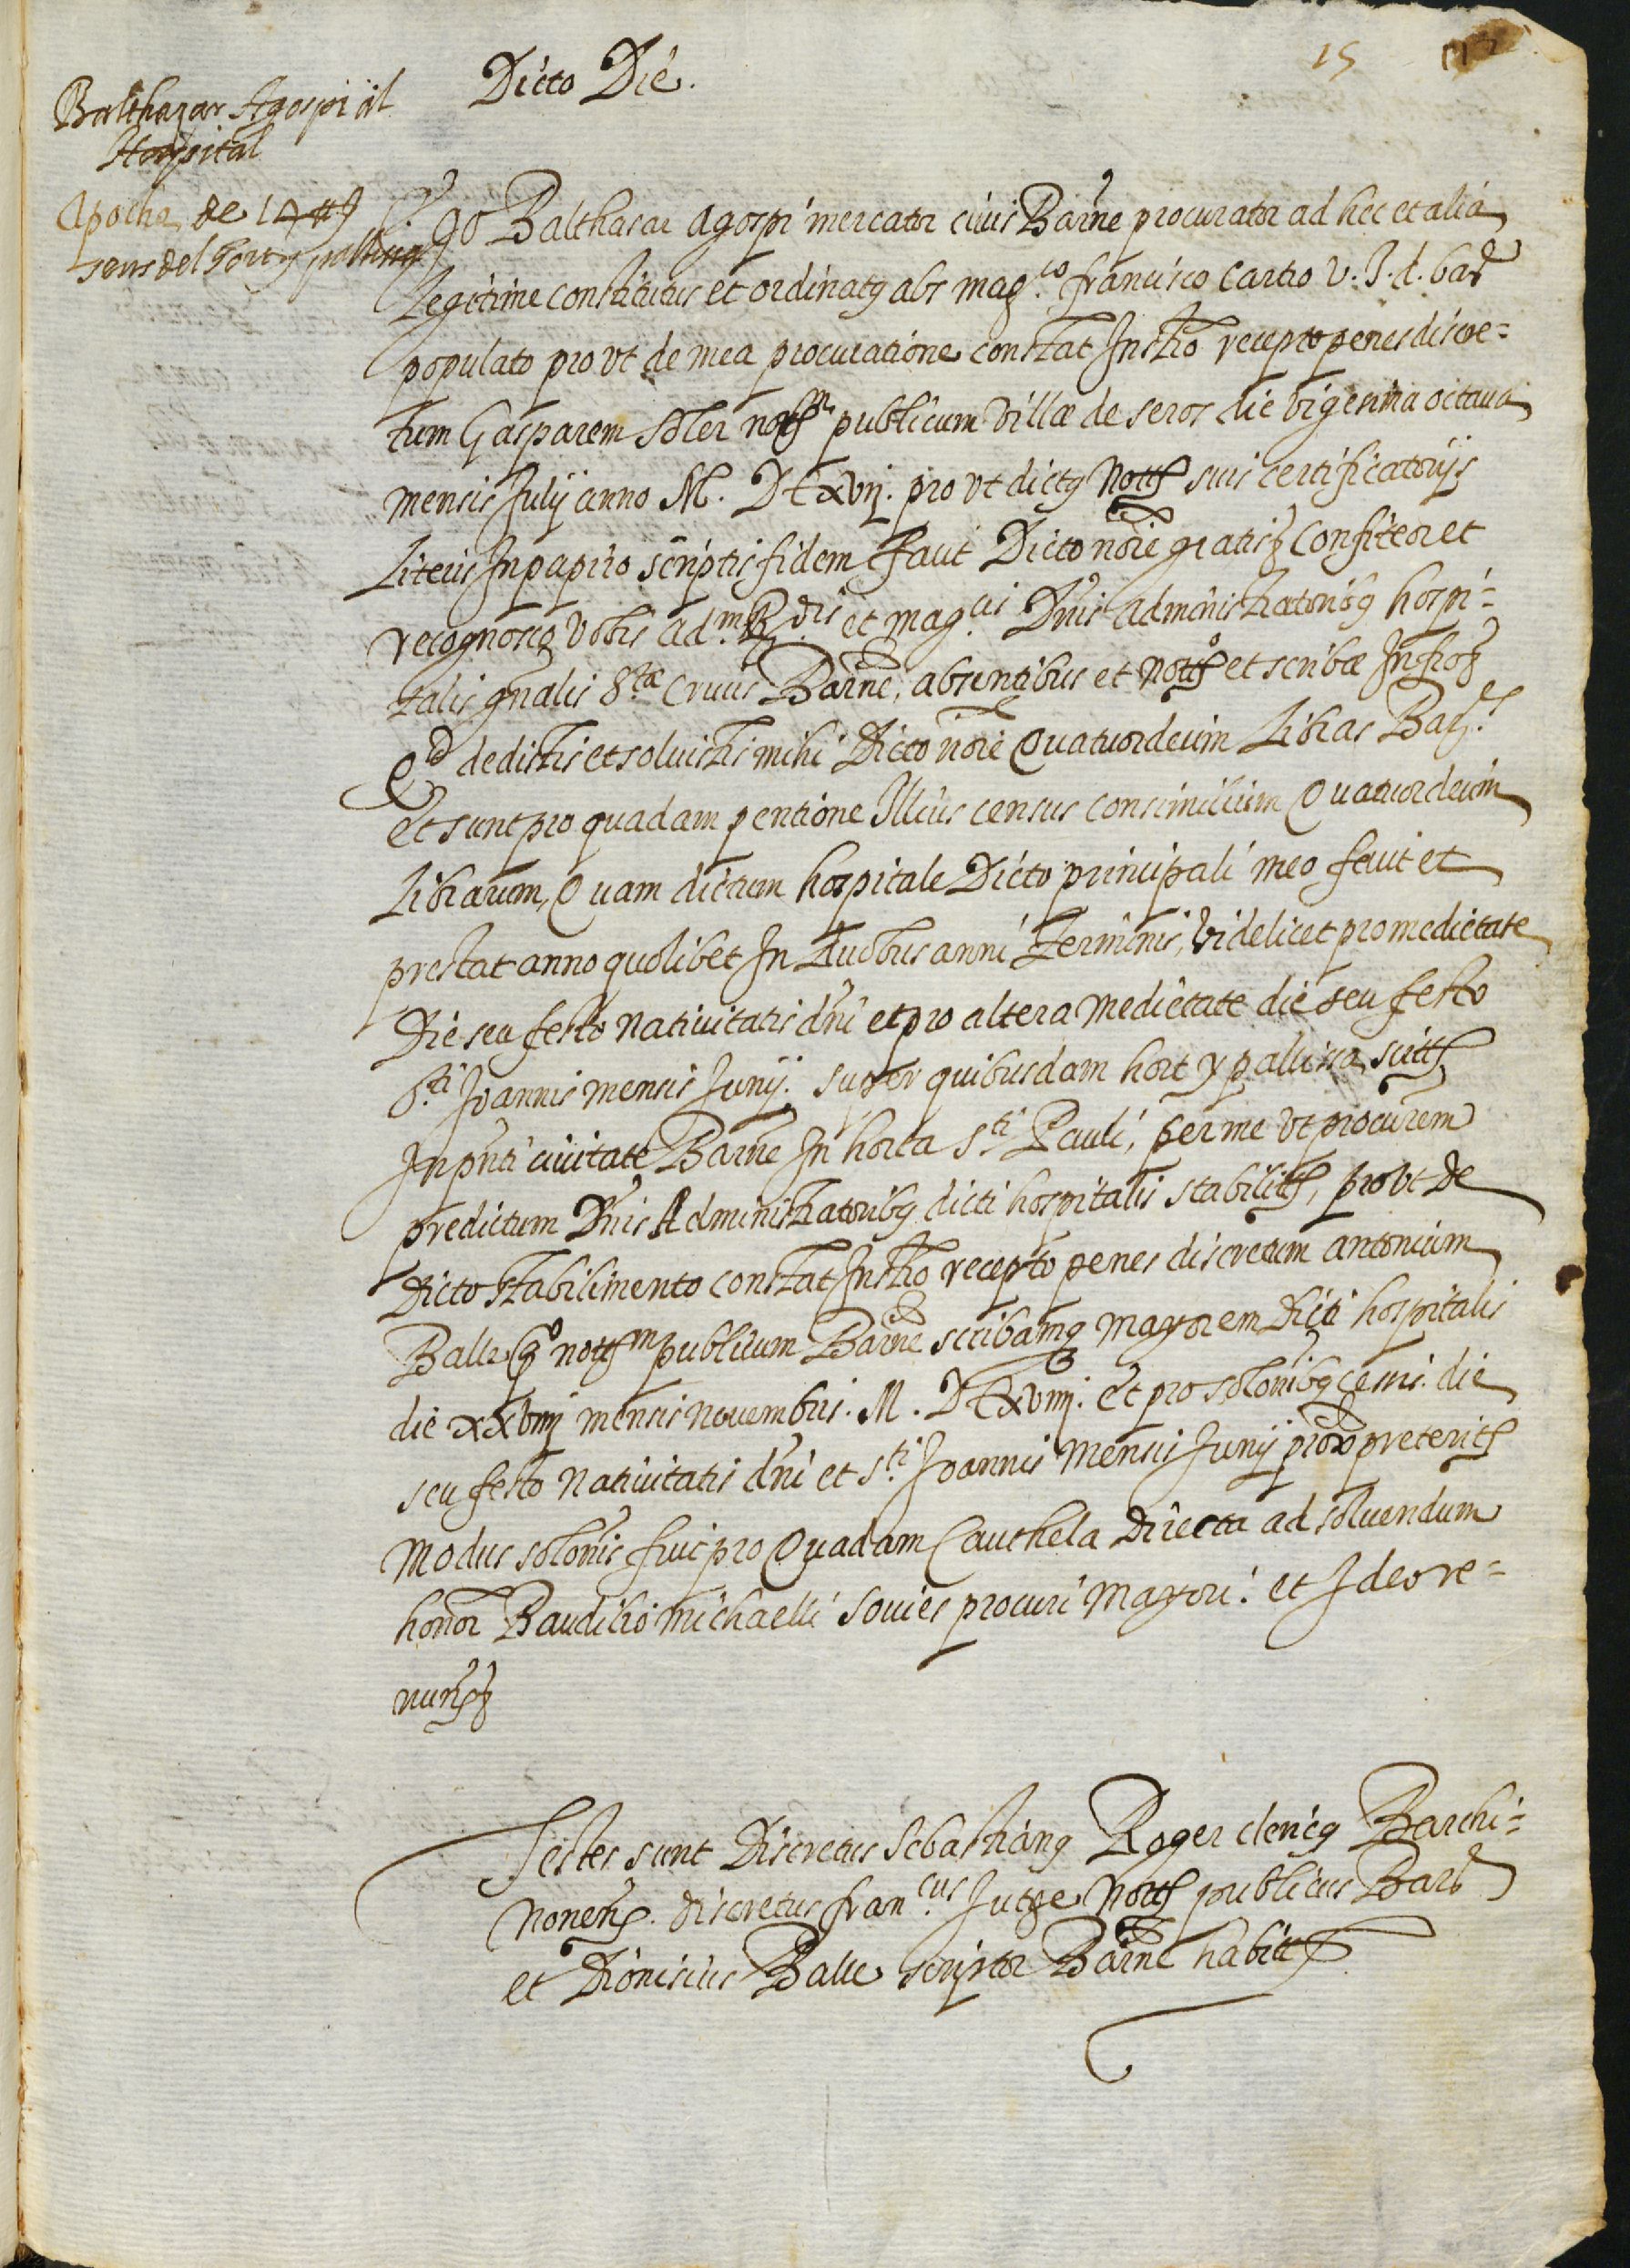 15
Dicto Die.
Balthazar Agospi al
Hospital
Apocha de 14 ₶
sens del hort y pallissa
Ego Balthasar Agospi mercator civis Barne procurator ad hec et alia
Legitime constitutus et ordinatus abs mag.co francisco Cartro V. J. d. bar
populato pro vt de mea procuratione constat Instro recepto penes discre=
tum Gasparem Soler nottm publicum Villæ de seros die vigesima octaua
mensis Julij anno M. DCxvij. pro vt dictus Nott suis certificatorijs
Literis In papiro scriptis fidem facit Dicto noie gratis Confiteor et
recognosco Vobis ad.m R.dis et mag.cis Dnis Administratoribus hospi=
talis gnalis S.tæ Crucis Barne, absentibus et notto et scribæ Infro
Qd dedistis et soluistis mihi Dicto noie Quatuordecim Libras Bar.es
et sunt pro quadam pentione Illius census consimilium Quatuordecim
Librarum, Quam dictum hospitale Dicto principali meo facit et
prestat anno quolibet In Duobus anni Terminis, Videlicet pro medietate
Die seu festo nativitatis dni et pro altera medietate die seu festo
S.ti Joannis mensis Junij. super quibusdam hort y pallissa scitt
In pnti ciuitate Barne In horta S.ti Pauli, per me vt procurem
predictum Dnis Administratoribus dicti hospitalis stabilitt, provt de
Dicto stabilimento constat Instro recepto penes discretum antonium
Balle qo nottm publicum Barne scribamq mayorem Dicti hospitalis
die xxviiij mensis nouembris. M. DCxviij. et pro solonibus cessis die
seu festo Nativitatis dni et S.ti Joannis Mensis Junij proxo preteritt
Modus solonis fuit pro Quadam Cauthela Directa ad soluendum
honor Baudilio Michaelli Sovies procuri Mayori. et Ideo re=
nuns
Testes sunt Discretus Sebastianus Roger clericus Barchi=
nonens. discretus fran.cus Jutge Nott publicus Bar
et Dionisius Balle scriptor Barne habitt